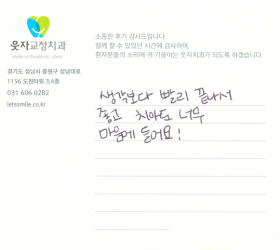 웃자교정치과
smile orthodontic clinic
경기도 성남시 중원구 성남대로
1156 도원타워 3,6층
031 606 0282
letssmile.co.kr
소중한 후기 감사드립니다.
함께 할 수 있었던 시간에 감사하며,
환자분들의 소리에 귀 기울이는 웃자치과가 되도록 하겠습니다.
생각보다 빨리 끝나서
좋고 치아도 너무
마음에 들어요!